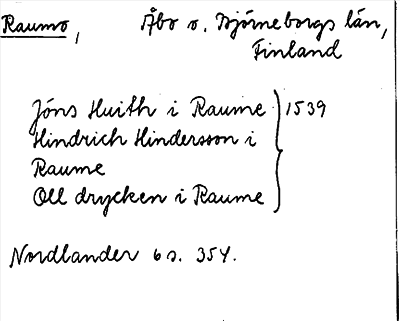 Raumo, Åbo o. Björneborgs län,
Finland
Jöns Huith i Raume } 1539
Hindrich Hindersson i
Raume
Oll drycken i Raume
Nordlander 6 s. 354.